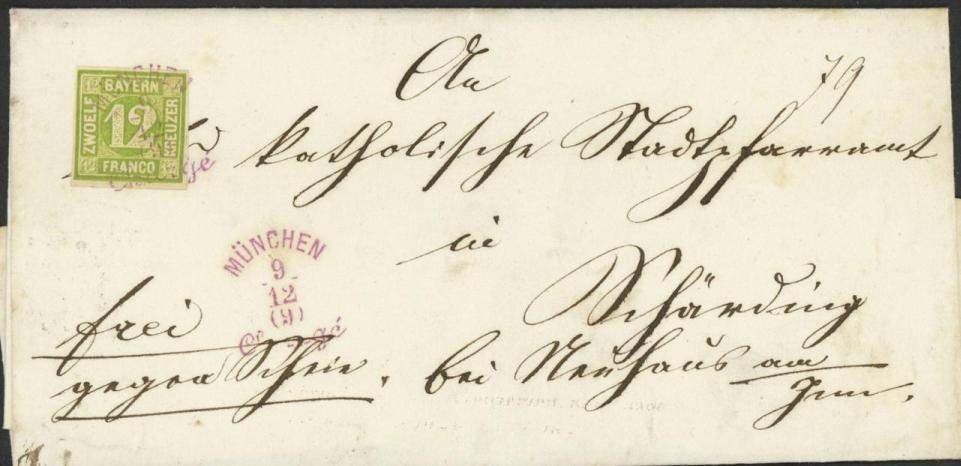 An
79
BAYERN
ZWOELF
12
KREUZER
FRANCO
12 12
12 12
katholische Stadtpfarramt
in
MÜNCHEN
9
12
(9)
Schärding
frei
gegen Schein. bei Neuhaus am
Inn.